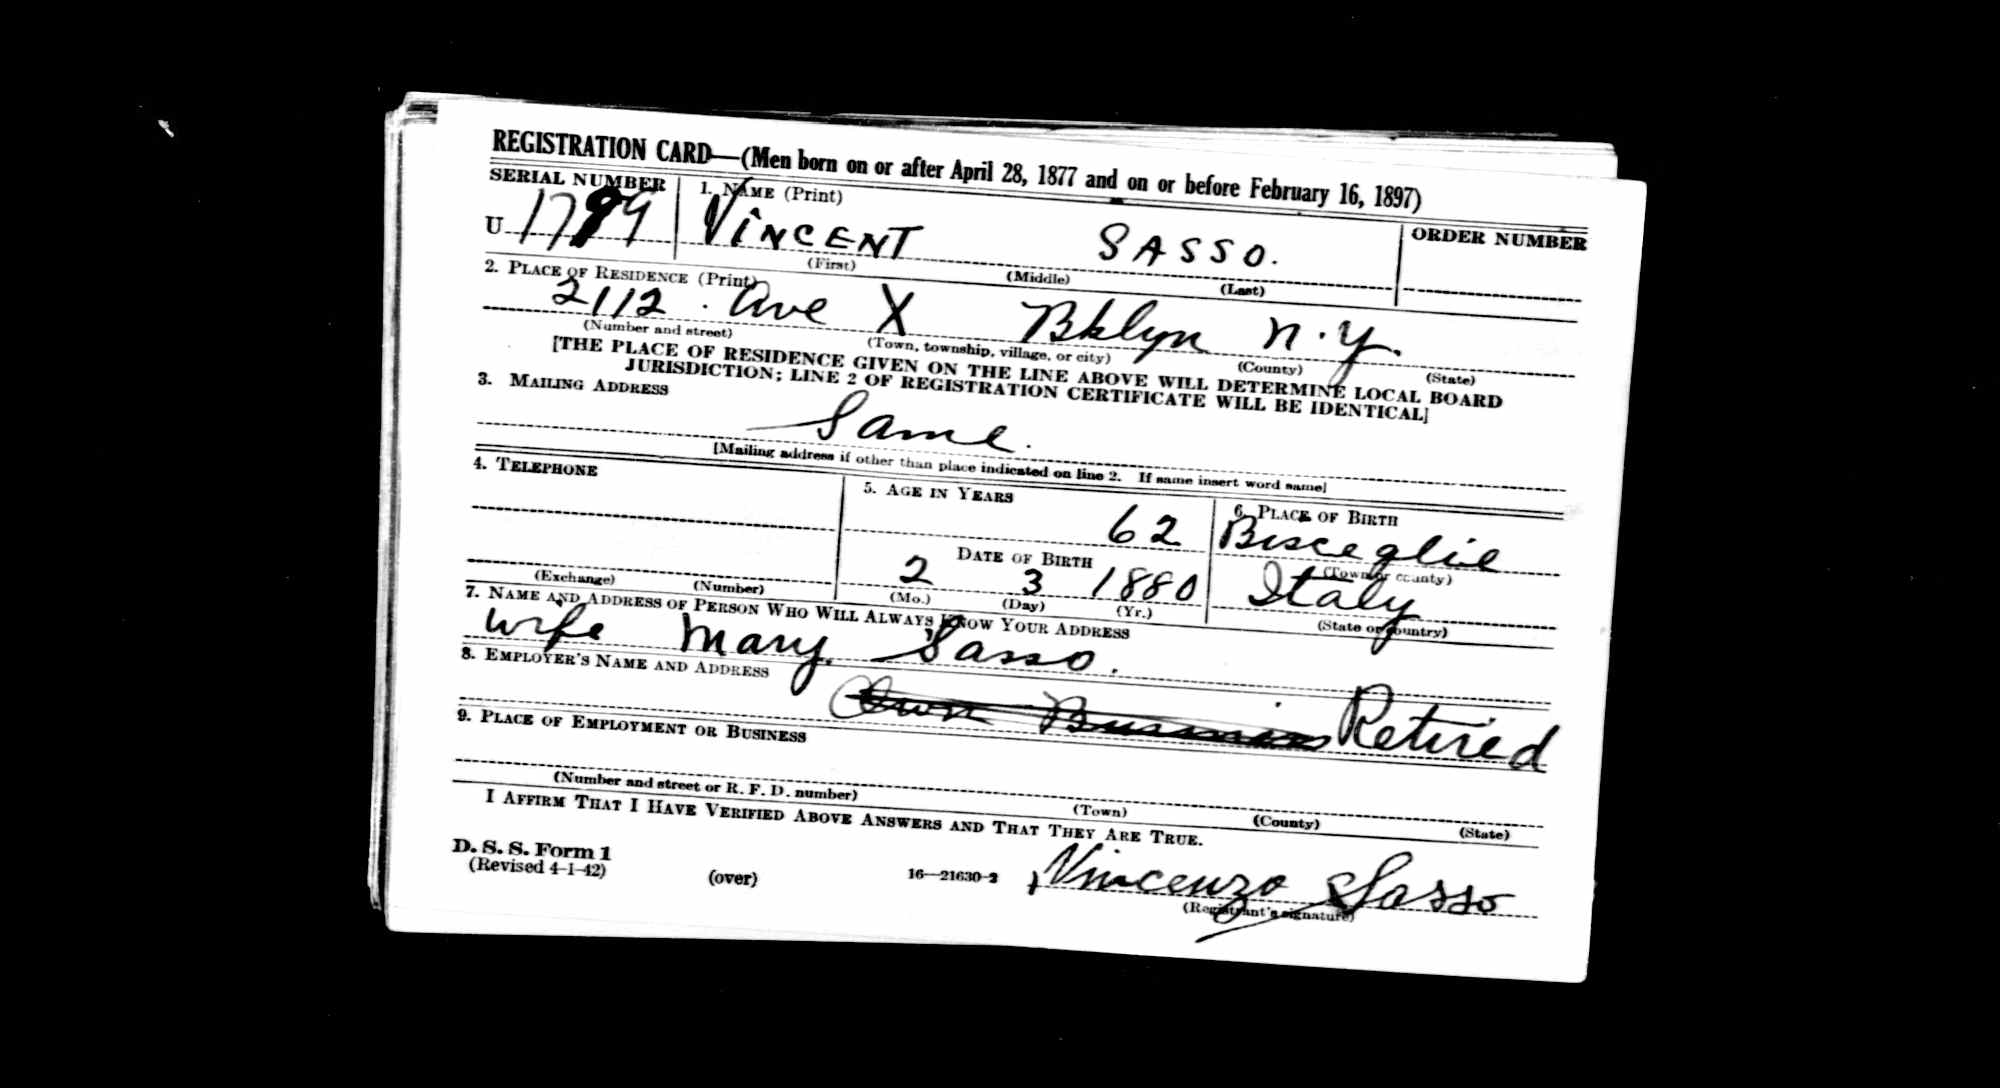 REGISTRATION CARD—(Men born on or after April 28, 1877 and on or before February 16, 1897)
SERIAL NUMBER
1. NAME (Print)
ORDER NUMBER
U 1799
VINCENT SASSO.
(First) (Middle) (Last)
2. PLACE OF RESIDENCE (Print)
2112 . Ave X Bklyn N.Y.
(Number and street) (Town, township, village, or city) (County) (State)
[THE PLACE OF RESIDENCE GIVEN ON THE LINE ABOVE WILL DETERMINE LOCAL BOARD
JURISDICTION; LINE 2 OF REGISTRATION CERTIFICATE WILL BE IDENTICAL]
3. MAILING ADDRESS
Same.
[Mailing address if other than place indicated on line 2. If same insert word same]
4. TELEPHONE
(Exchange) (Number)
5. AGE IN YEARS
62
DATE OF BIRTH
2 3 1880
(Mo.) (Day) (Yr.)
6. PLACE OF BIRTH
Bisceglie
(Town or county)
Italy
(State or country)
7. NAME AND ADDRESS OF PERSON WHO WILL ALWAYS KNOW YOUR ADDRESS
wife Mary Sasso.
8. EMPLOYER'S NAME AND ADDRESS
Own Business Retired
9. PLACE OF EMPLOYMENT OR BUSINESS
(Number and street or R. F. D. number) (Town) (County) (State)
I AFFIRM THAT I HAVE VERIFIED ABOVE ANSWERS AND THAT THEY ARE TRUE.
D. S. S. Form 1
(Revised 4-1-42)
(over)
16—21630-2
Vincenzo Sasso
(Registrant's signature)